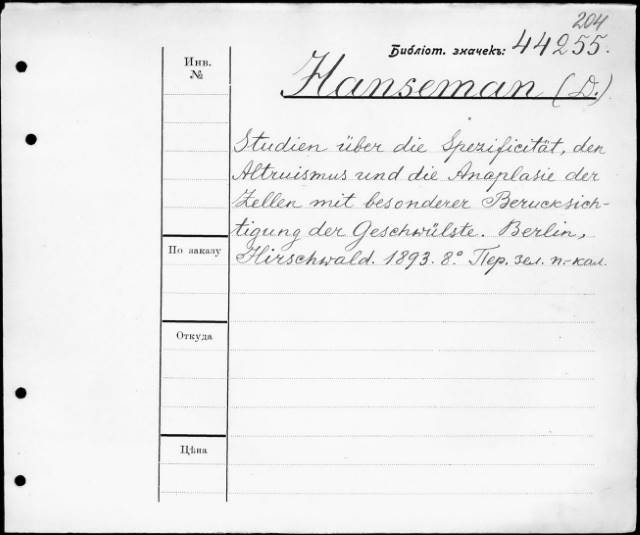 204
Библіот. значекъ: 44255.
Инв.
№
Hanseman (D.)
Studien über die Spezificität, den
Altruismus und die Anaplasie der
Zellen mit besonderer Berucksich-
tigung der Geschwülste. Berlin,
По заказу
Hirschwald. 1893. 8° Пер. зел. п.-кал.
Откуда
Цѣна